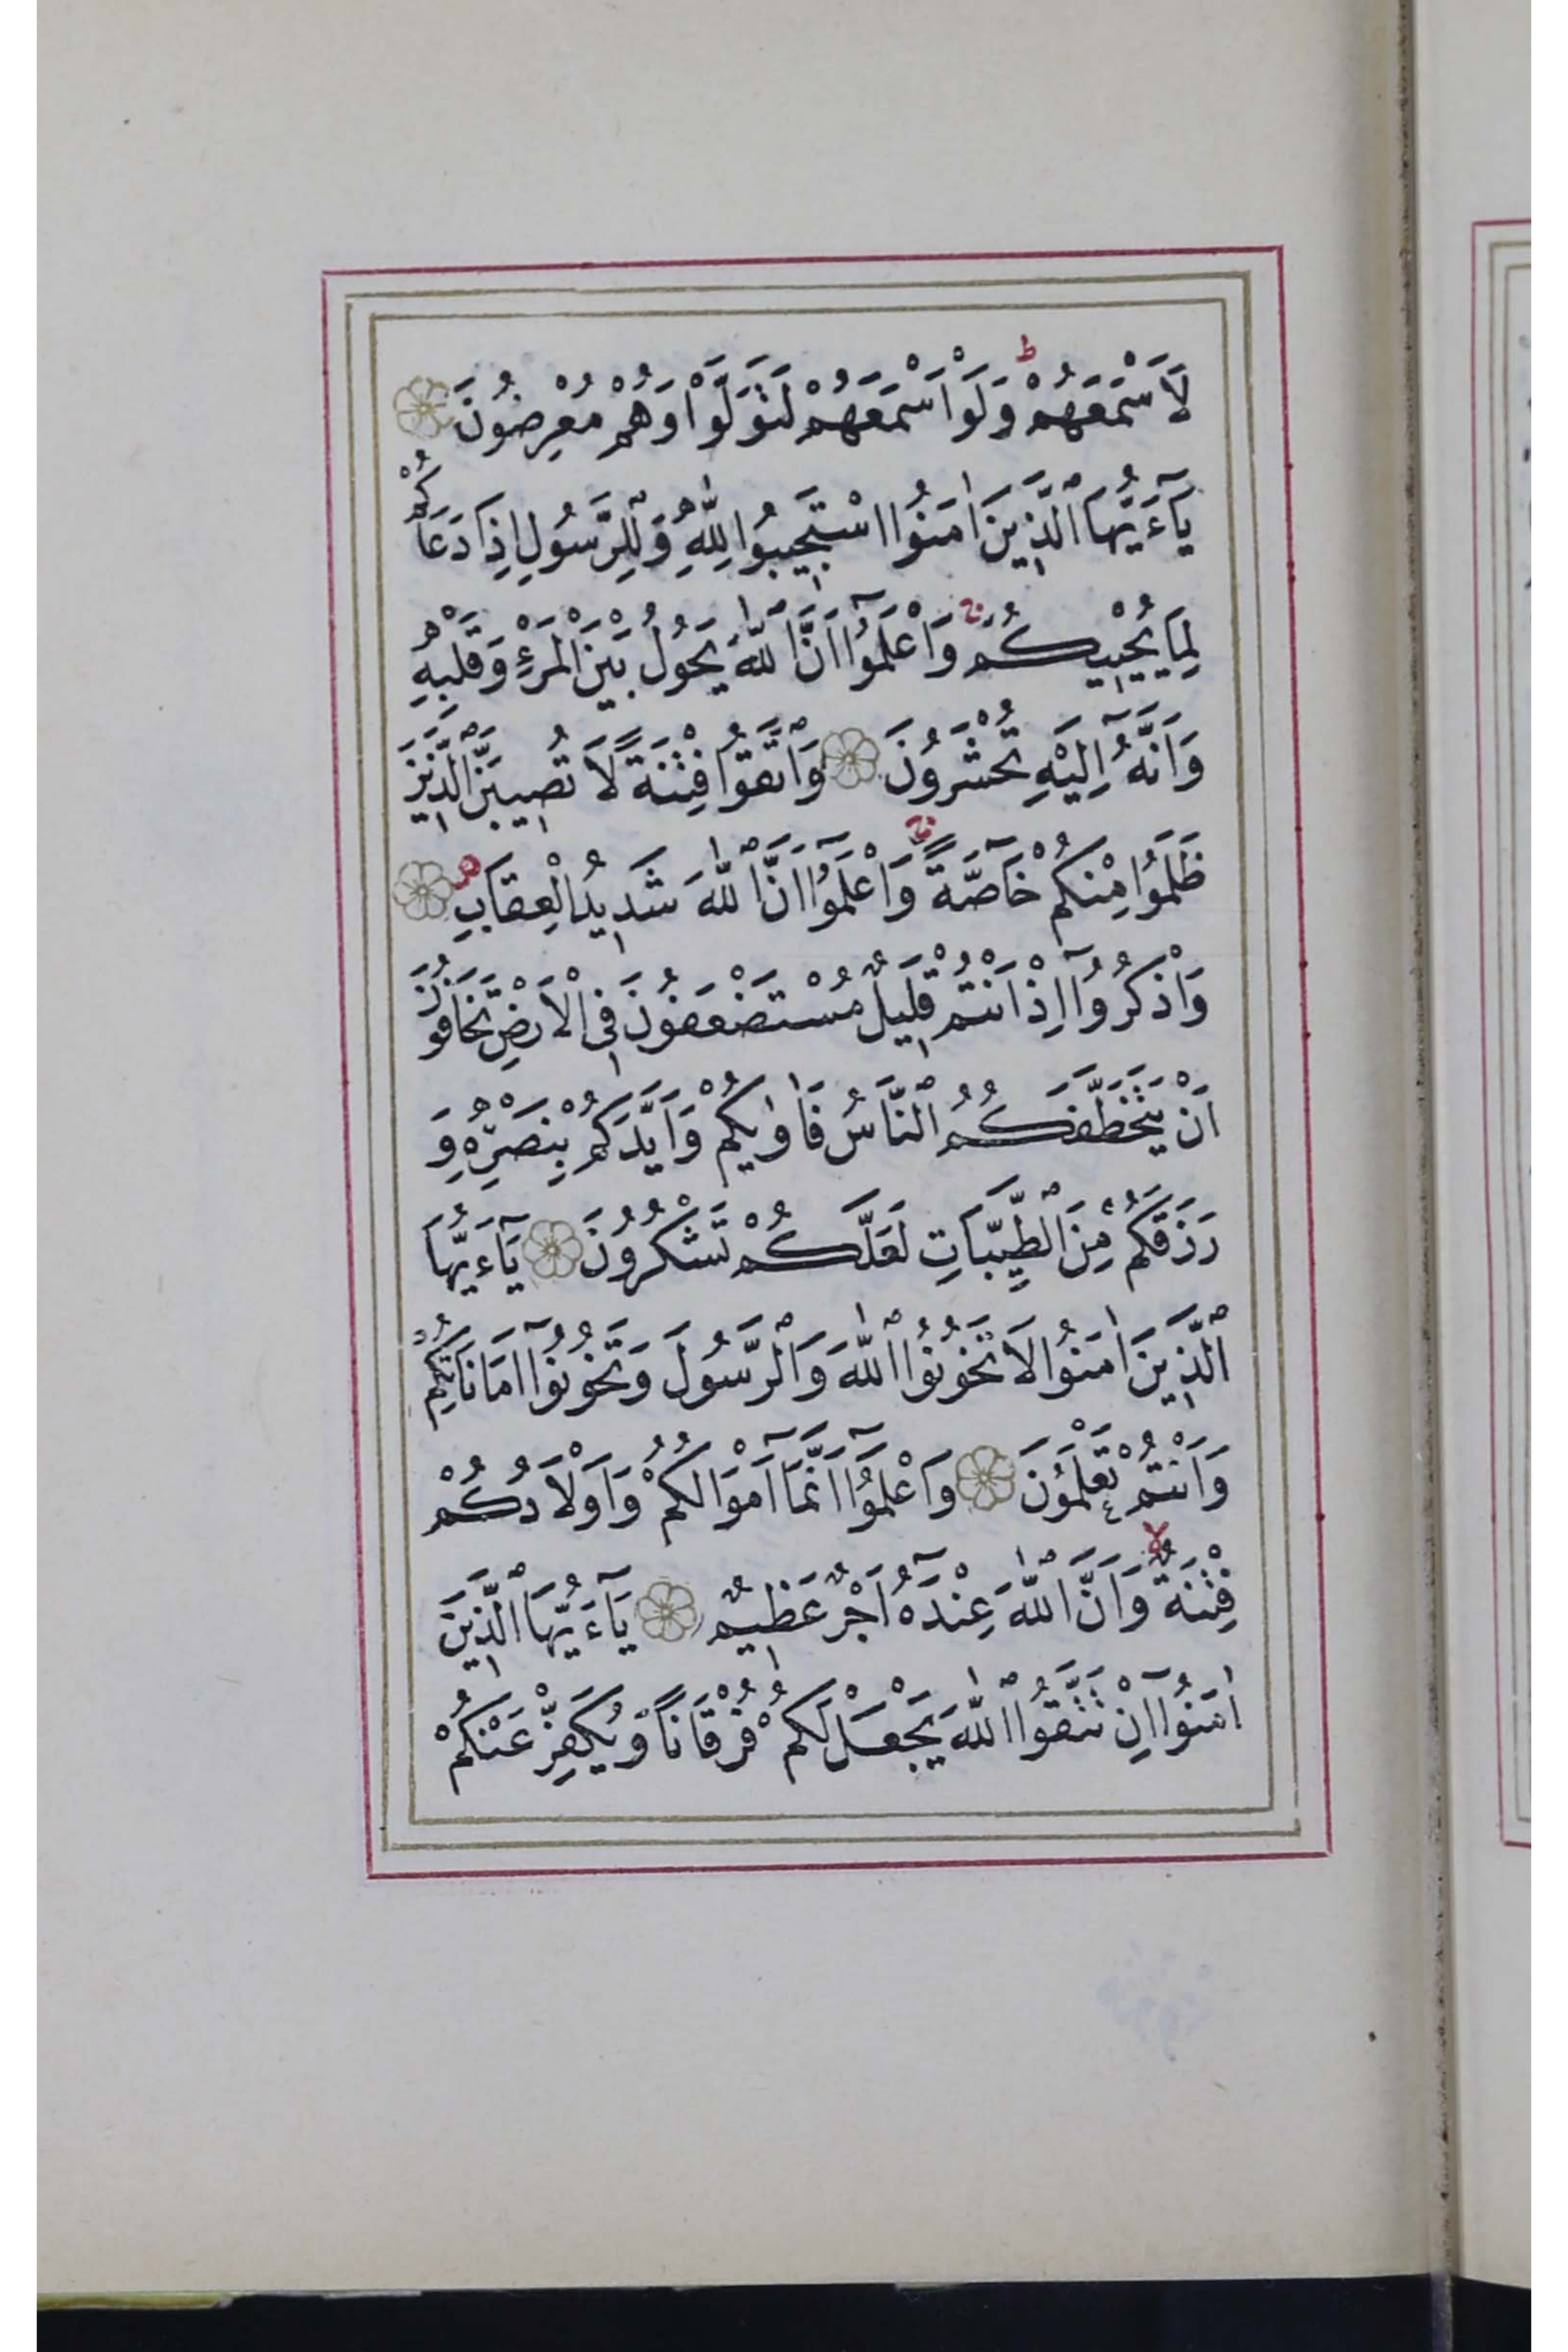 لَاَسْمَعَهُمْ ۜ وَلَوْ اَسْمَعَهُمْ لَتَوَلَّوْا وَهُمْ مُعْرِضُونَ
يَآءَيُّهَا ٱلَّذِينَ اٰمَنُوا اسْتَجِيبُوا لِلّٰهِ وَلِلرَّسُولِ اِذَا دَعَاكُمْ
لِمَا يُحْيِيكُمْ ۚ وَاعْلَمُوٓا اَنَّ ٱللّٰهَ يَحُولُ بَيْنَ الْمَرْءِ وَقَلْبِهِ
وَاَنَّهُٓ اِلَيْهِ تُحْشَرُونَ وَٱتَّقُوا فِتْنَةً لَا تُصِيبَنَّ ٱلَّذِينَ
ظَلَمُوا مِنْكُمْ خَآصَّةً ۚ وَاعْلَمُوٓا اَنَّ ٱللّٰهَ شَدِيدُ الْعِقَابِ
وَاذْكُرُوٓا اِذْ اَنْتُمْ قَلِيلٌ مُسْتَضْعَفُونَ فِى الْاَرْضِ تَخَافُونَ
اَنْ يَتَخَطَّفَكُمُ ٱلنَّاسُ فَاٰوٰيكُمْ وَاَيَّدَكُمْ بِنَصْرِهِ وَ
رَزَقَكُمْ مِنَ ٱلطَّيِّبَاتِ لَعَلَّكُمْ تَشْكُرُونَ يَآءَيُّهَا
ٱلَّذِينَ اٰمَنُوا لَا تَخُونُوا ٱللّٰهَ وَٱلرَّسُولَ وَتَخُونُوٓا اَمَانَاتِكُمْ
وَاَنْتُمْ تَعْلَمُونَ وَاعْلَمُوٓا اَنَّمَآ اَمْوَالُكُمْ وَاَوْلَادُكُمْ
فِتْنَةٌ ۙ وَاَنَّ ٱللّٰهَ عِنْدَهُٓ اَجْرٌ عَظِيمٌ يَآءَيُّهَا ٱلَّذِينَ
اٰمَنُوٓا اِنْ تَتَّقُوا ٱللّٰهَ يَجْعَلْ لَكُمْ فُرْقَانًا وَيُكَفِّرْ عَنْكُمْ